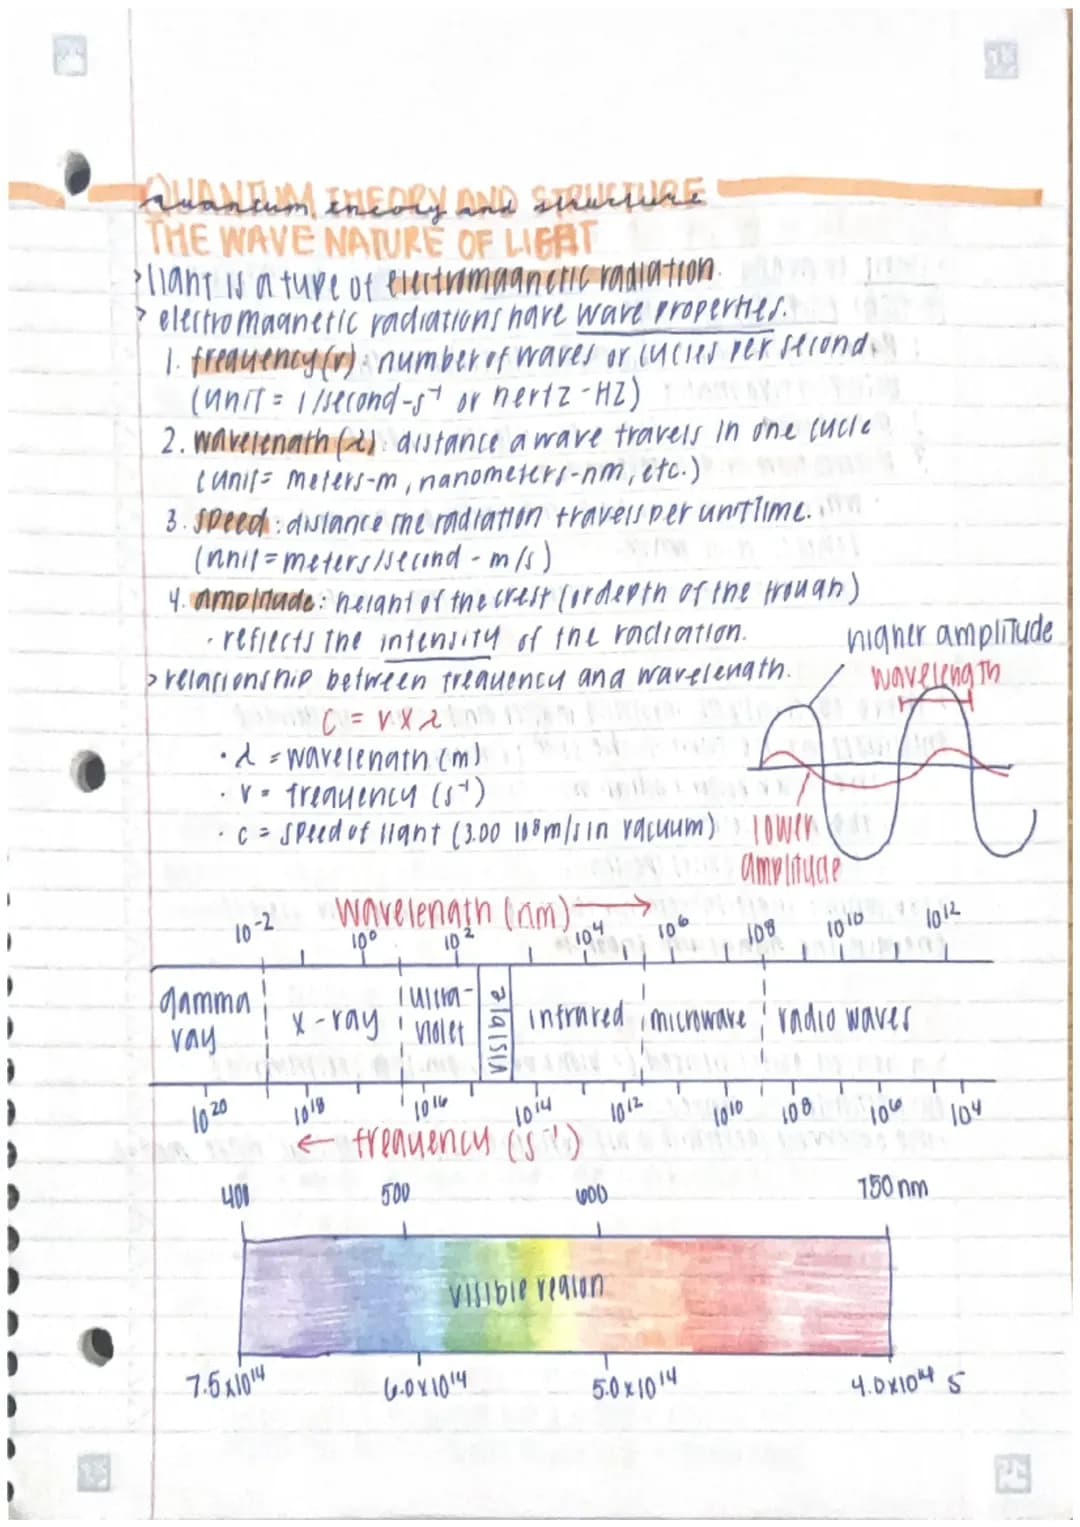 QUANTUM THEORY AND STRUCTURE
quantum theory and structure
THE WAVE NATURE OF LIGHT
>light is a type of electromagnetic radiation.
> electromagnetic radiations have wave properties.
1. frequency (v): number of waves or cycles per second.
(unit = 1/second-s⁻¹ or hertz-HZ)
2. wavelength (λ): distance a wave travels in one cycle
(unit= meters-m, nanometers-nm, etc.)
3. speed: distance the radiation travels per unit time.
(unit=meters/second - m/s)
4. amplitude: height of the crest (or depth of the trough)
· reflects the intensity of the radiation.
higher amplitude
wavelength
>relationship between frequency and wavelength.
C = v x λ
· λ = wavelength (m)
· v = frequency (s⁻¹)
· c = speed of light (3.00 10⁸m/s in vacuum)
lower
amplitude
wavelength (nm) →
10⁻² 10⁰ 10² 10⁴ 10⁶ 10⁸ 10¹⁰ 10¹²
gamma ray x-ray ultra-violet visible infrared microwave radio waves
10²⁰ 10¹⁸ 10¹⁶ 10¹⁴ 10¹² 10¹⁰ 10⁸ 10⁶ 10⁴
← frequency (s⁻¹)
400 500 600 750 nm
visible region
7.5x10¹⁴ 6.0x10¹⁴ 5.0x10¹⁴ 4.0x10¹⁴ s